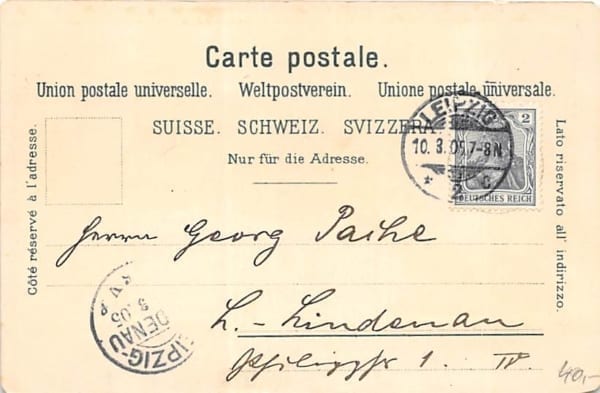 Carte postale.
Union postale universelle. Weltpostverein. Unione postale universale.
SUISSE. SCHWEIZ. SVIZZERA.
Nur für die Adresse.
Côté réservé à l'adresse.
Lato riservato all' indirizzo.
LEIPZIG
10. 3. 05. 7-8 N.
* 2 c
2
DEUTSCHES REICH
Herrn Georg Paihe
L.-Lindenau
1. IV.
LEIPZIG-
DENAU
3. 05
8 V
40,-